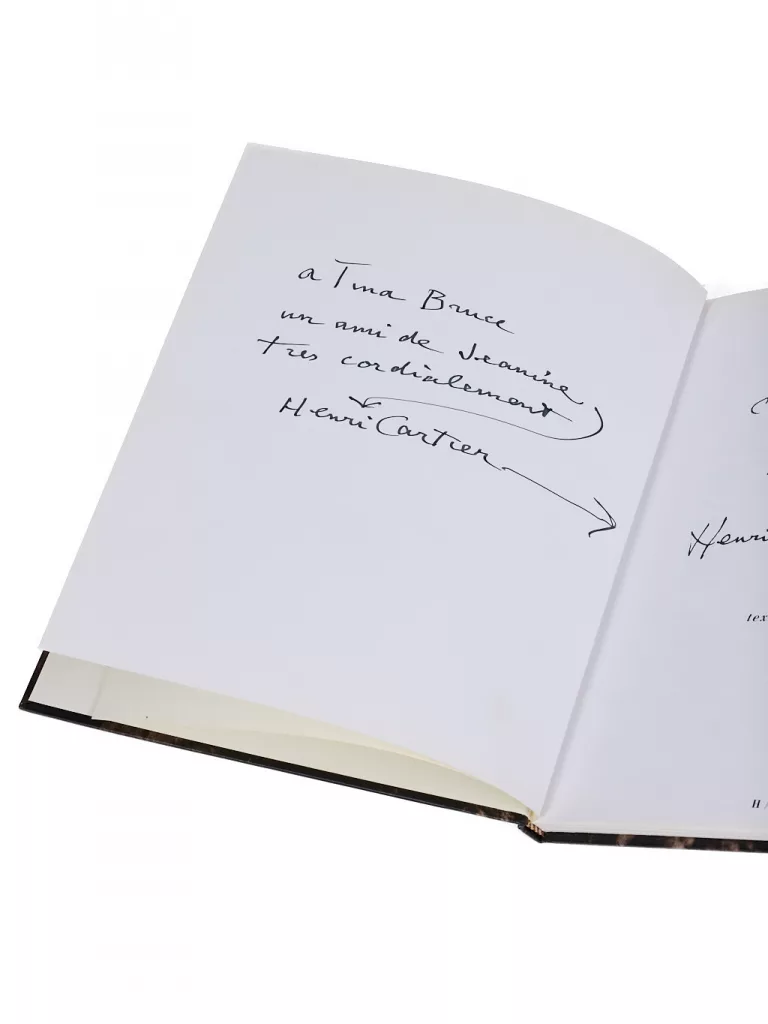 a Tina Bruce
un ami de Jeanine
très cordialement
Henri Cartier
Henri
tex
H